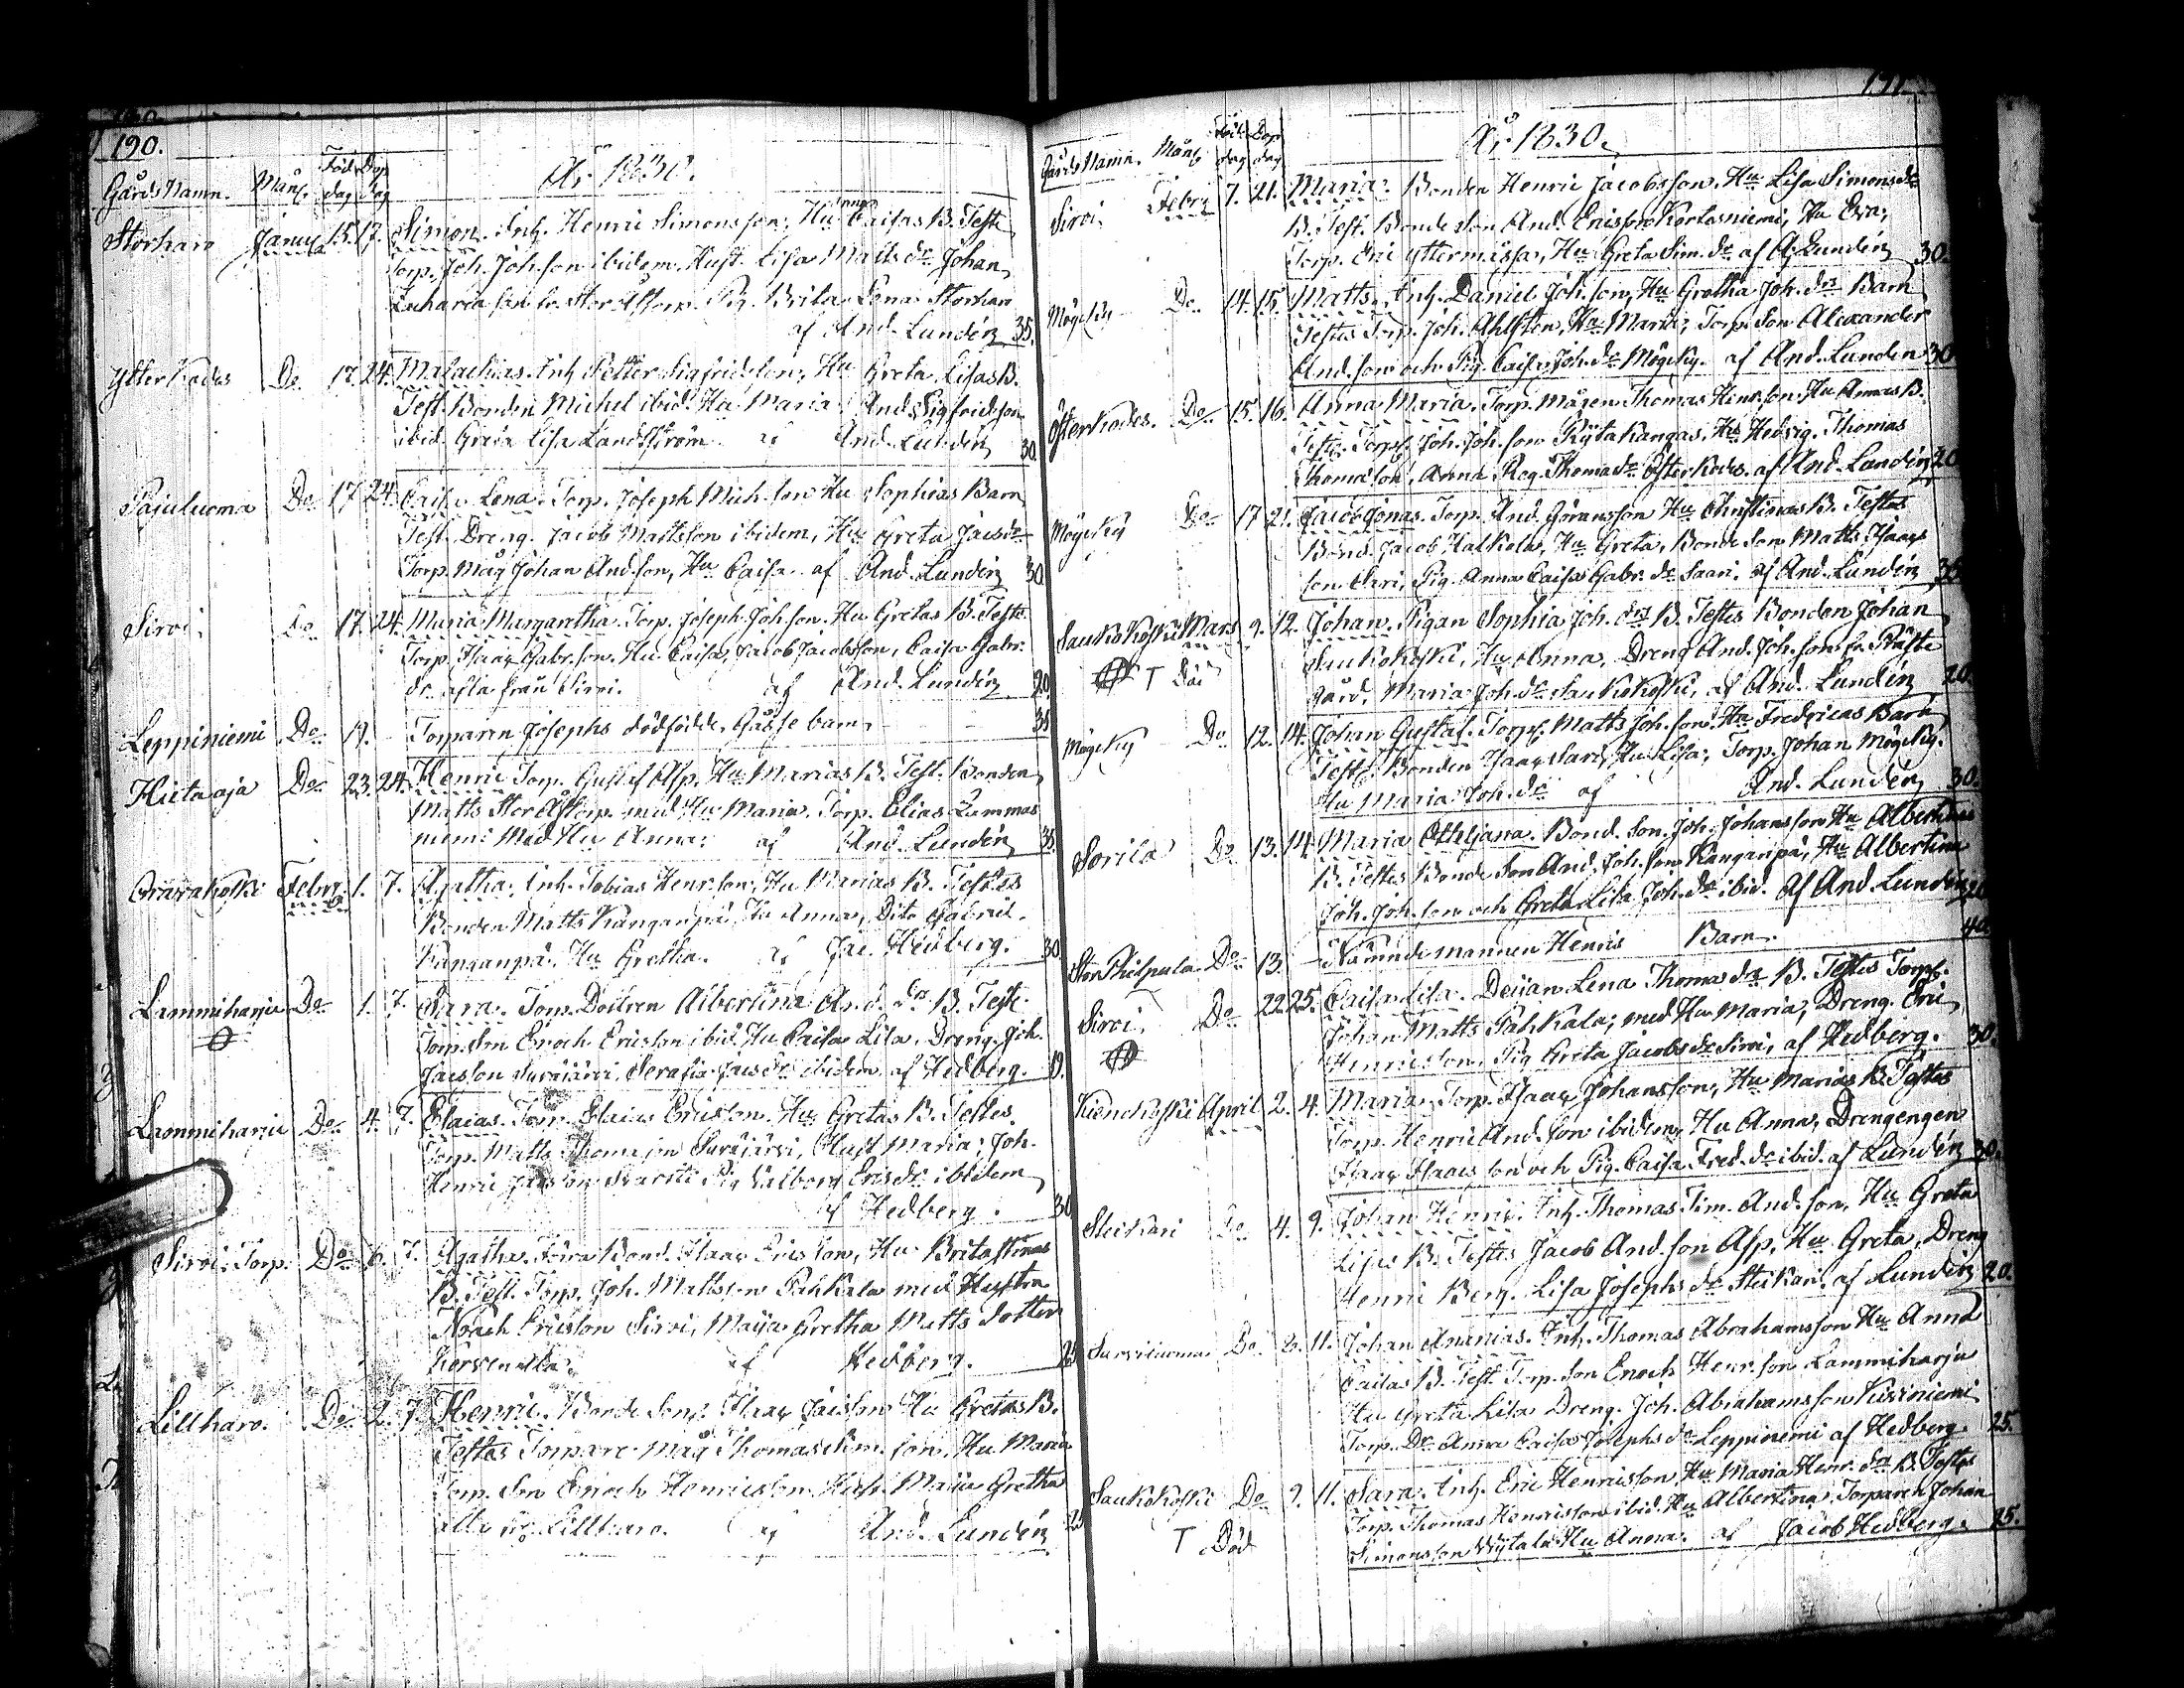 190.
Gårds Namn. Mån. Föd. dag Dop dag År 1830.
Storharo Janua 15. 17. Simon. Inh. Henric Simonsson, Hu Caisas B. Test
Torp. Joh. Joh.son ibidem. Hust. Lisa Matts dr Johan
Zacharia son Pig. Brita Lena Storharo
af And. Lundén 35.
Ytter Kodes Do 17. 24. Malachias. Inh. Petter Sigfridsson, Hu Greta Lisas B.
Test. Bonden Michel ibid. Hu Maria And. Sigfridsson
ibid. Greta Lisa Landström af And. Lundén 30
Pajuluoma Do 17 24 Caisa Lena. Torp. Joseph Mich.son Hu Sophias Barn
Test. Dreng. Jacob Mattsson ibidem, Hu Greta Jacs dr
Torp. Måg Johan And.son, Hu Caisa af And. Lundén 30
Siroi. Do 17. 24. Maria Margaretha. Torp. Joseph Joh.son. Hu Gretas B. Testes
Torp. Isaac Gabr.son. Hu Caisa, Jacob Jacobsson, Caisa Gabr.
dr alla från Siroi. af And. Lundén 20
Leppiniemi Do 19. Torparen Josephs dödfödde Gåsse barn 35
Hietaoja Do 23. 24. Henric Torp. Gustaf Asp. Hu Marias B. Test. Bonden
Matts med Hu Maria. Torp. Elias Lammas
niemi Med Hu Anna; af And. Lundén 35.
Oravakoski Febru. 1. 7. Agatha. Inh. Tobias Henr.son, Hu Marias B. Testes
Bonden Matts Kanganpä, Hu Anna, Dito Gabriel
Kanganpä. Hu Gretha. af Jac. Hedberg. 30
Lammiharju Do 1. 7. Sara. Torp. Dottren Albertina And. drs B. Test.
Torp. Son Enoch Ericsson ibid. Hu Caisa Lisa. Dreng. Joh.
Jacsson Surejärvi, Serafia Jacs dr ibidem af Hedberg. 19.
Lammiharju Do 4. 7. Esaias. Torp. Esaias Ericsson. Hu Gretas B. Testes
Torp. Matts Thomasson Surejärvi, Hust Maria; Joh.
Henric Jacsson Pig Valborg Erics dr ibidem
af Hedberg. 30
Siroi. Torp. Do 6. 7. Agatha. Bond. Isaac Ericsson, Hu Brita Stinas
B. Test. Torp. Joh. Mattsson Pahkala med Hustra
Noach Ericsson Siroi, Maija Gretha Matts Dotter
af Hedberg. 25
Lillharo. Do 2. 7. Henric. Bonde Son. Isaac Jacsson Hu Gretas B.
Testes Torpare Måg Thomas Sim.son. Hu Maria
Torp. Son Enoch Henricsson Hu Maija Gretha
alla fr. Lillharo. af And. Lundén 25
191.
Gårds Namn. Mån. Föd. dag Dop dag År 1830.
Siroi. Febru 7. 21. Maria. Bonden Henric Jacobsson, Hu Lisa Simons drs
B. Test. Bonde Son And. Ericsson Kortesniemi, Hu Eva;
Torp. Eric Yttermässa, Hu Greta Sim. dr af A. Lundén 30.
Mögeky Do 14. 15. Matts. Inh. Daniel Joh.son, Hu Gretha Joh. drs Barn
Testes Torp. Joh. Ahlsten, Hu Maria; Torp. Son Alexander
And.son och Pig. Caisa Joh. dr Mögeky. af And. Lunden 30
Österkodes. Do 15. 16. Anna Maria. Torp. Mågen Thomas Henr.son. Hu Annas B.
Testes. Torp. Joh. Joh.son Rytakangas, Hu Hedvig. Thomas
Thomasson, Anna Reg. Thomas dr Österkodes. af And. Lundén 20
Mögeky Do 17 21. Jacob Jonas. Torp. And. Göransson Hu Christinas B. Testes
Bond. Jacob Halkola, Hu Greta, Bonde Son Matts Isaacs
son Pig. Anna Caisa Gabr. dr Saari. af And. Lundén 35
Saukokoski Mars 9. 12. Johan. Pigan Sophia Joh. drs B. Testes Bonden Johan
T Död Saukokoski, Hu Anna, Dreng And. Joh.son fr. Präste
gård. Maria Joh. dr Saukokoski, af And. Lundén 20.
Mögeky Do 12. 14. Johan Gustaf. Torp. Matts Joh.son. Hu Fredricas Barn
Test. Bonden Isaac Saari, Hu Lisa, Torp. Johan Mögeky.
Hu Maria Joh. dr af And. Lundén 30.
Sorila Do 13. 14. Maria Othljana. Bond. Son. Joh. Johansson Hu Albertinas
B. Testes Bonde Son And. Joh.son Kanganpä, Hu Albertina
Joh. Joh.son och Greta Lisa Joh. dr ibid. af And. Lundén 20
Stor Philpula Do 13. Nämndemannen Henrics Barn. 40
Siroi. Do 22 25. Caisa Lisa. Deijan Lena Thomas drs B. Testes Torp.
Johan Matts Pahkala, med Hu Maria, Dreng. Eric
Henricsson, Pig Greta Jacobs dr Siroi, af Hedberg. 30.
Kienokoski April 2. 4. Maria. Torp. Isaac Johansson, Hu Marias B. Testes
Torp. Henric And.son ibidem, Hu Anna, Drengengen
Isaac Isaacsson och Pig. Caisa Fred. dr ibid. af Lundén 30.
Steikari Do 4. 9. Johan Henric. Inh. Thomas Tim. And.son, Hu Greta
Lisas B. Testes Jacob And.son Asp, Hu Greta, Dreng
Henric Berg. Lisa Josephs dr Steikari. af Lundén 20.
Do 2. 11. Johan Ananias. Inh. Thomas Abrahamsson Hu Anna
Caisas B. Test Torp. Son Enoch Henr.son Lammiharju
Hu Greta Lisa Dreng. Joh. Abrahamsson Kiviniemi
Torp. Dr Anna Caisa Josephs dr Leppiniemi af Hedberg. 25.
Saukokoski Do 9. 11. Sara. Inh. Eric Henricsson, Hu Maria Henr. drs B. Testes
T Död Torp. Thomas Henricsson ibid. Hu Albertina. Torparen Johan
Simonsson Hu Anna. af Jacob Hedberg. 25.